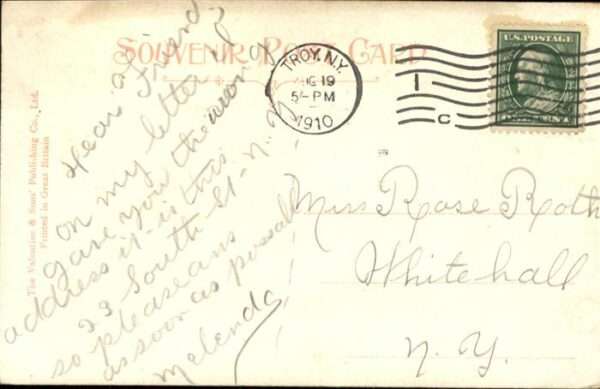 SOUVENIR POST CARD
TROY, N.Y.
19
5-PM
1910
1
C
U.S. POSTAGE
The Valentine & Sons' Publishing Co., Ltd.
Printed in Great Britain
Dear Friend
on my letter I
gave you the wrong
address it is this
23 South St. N. Y.
so please ans
as soon as possabl
Miss Rose Roth
Whitehall
N. Y.